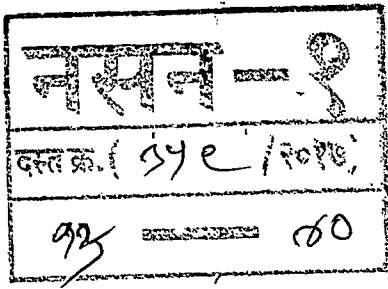 नसन - १
दस्त क्र. ( ३५९ /२०१७)
— ४०